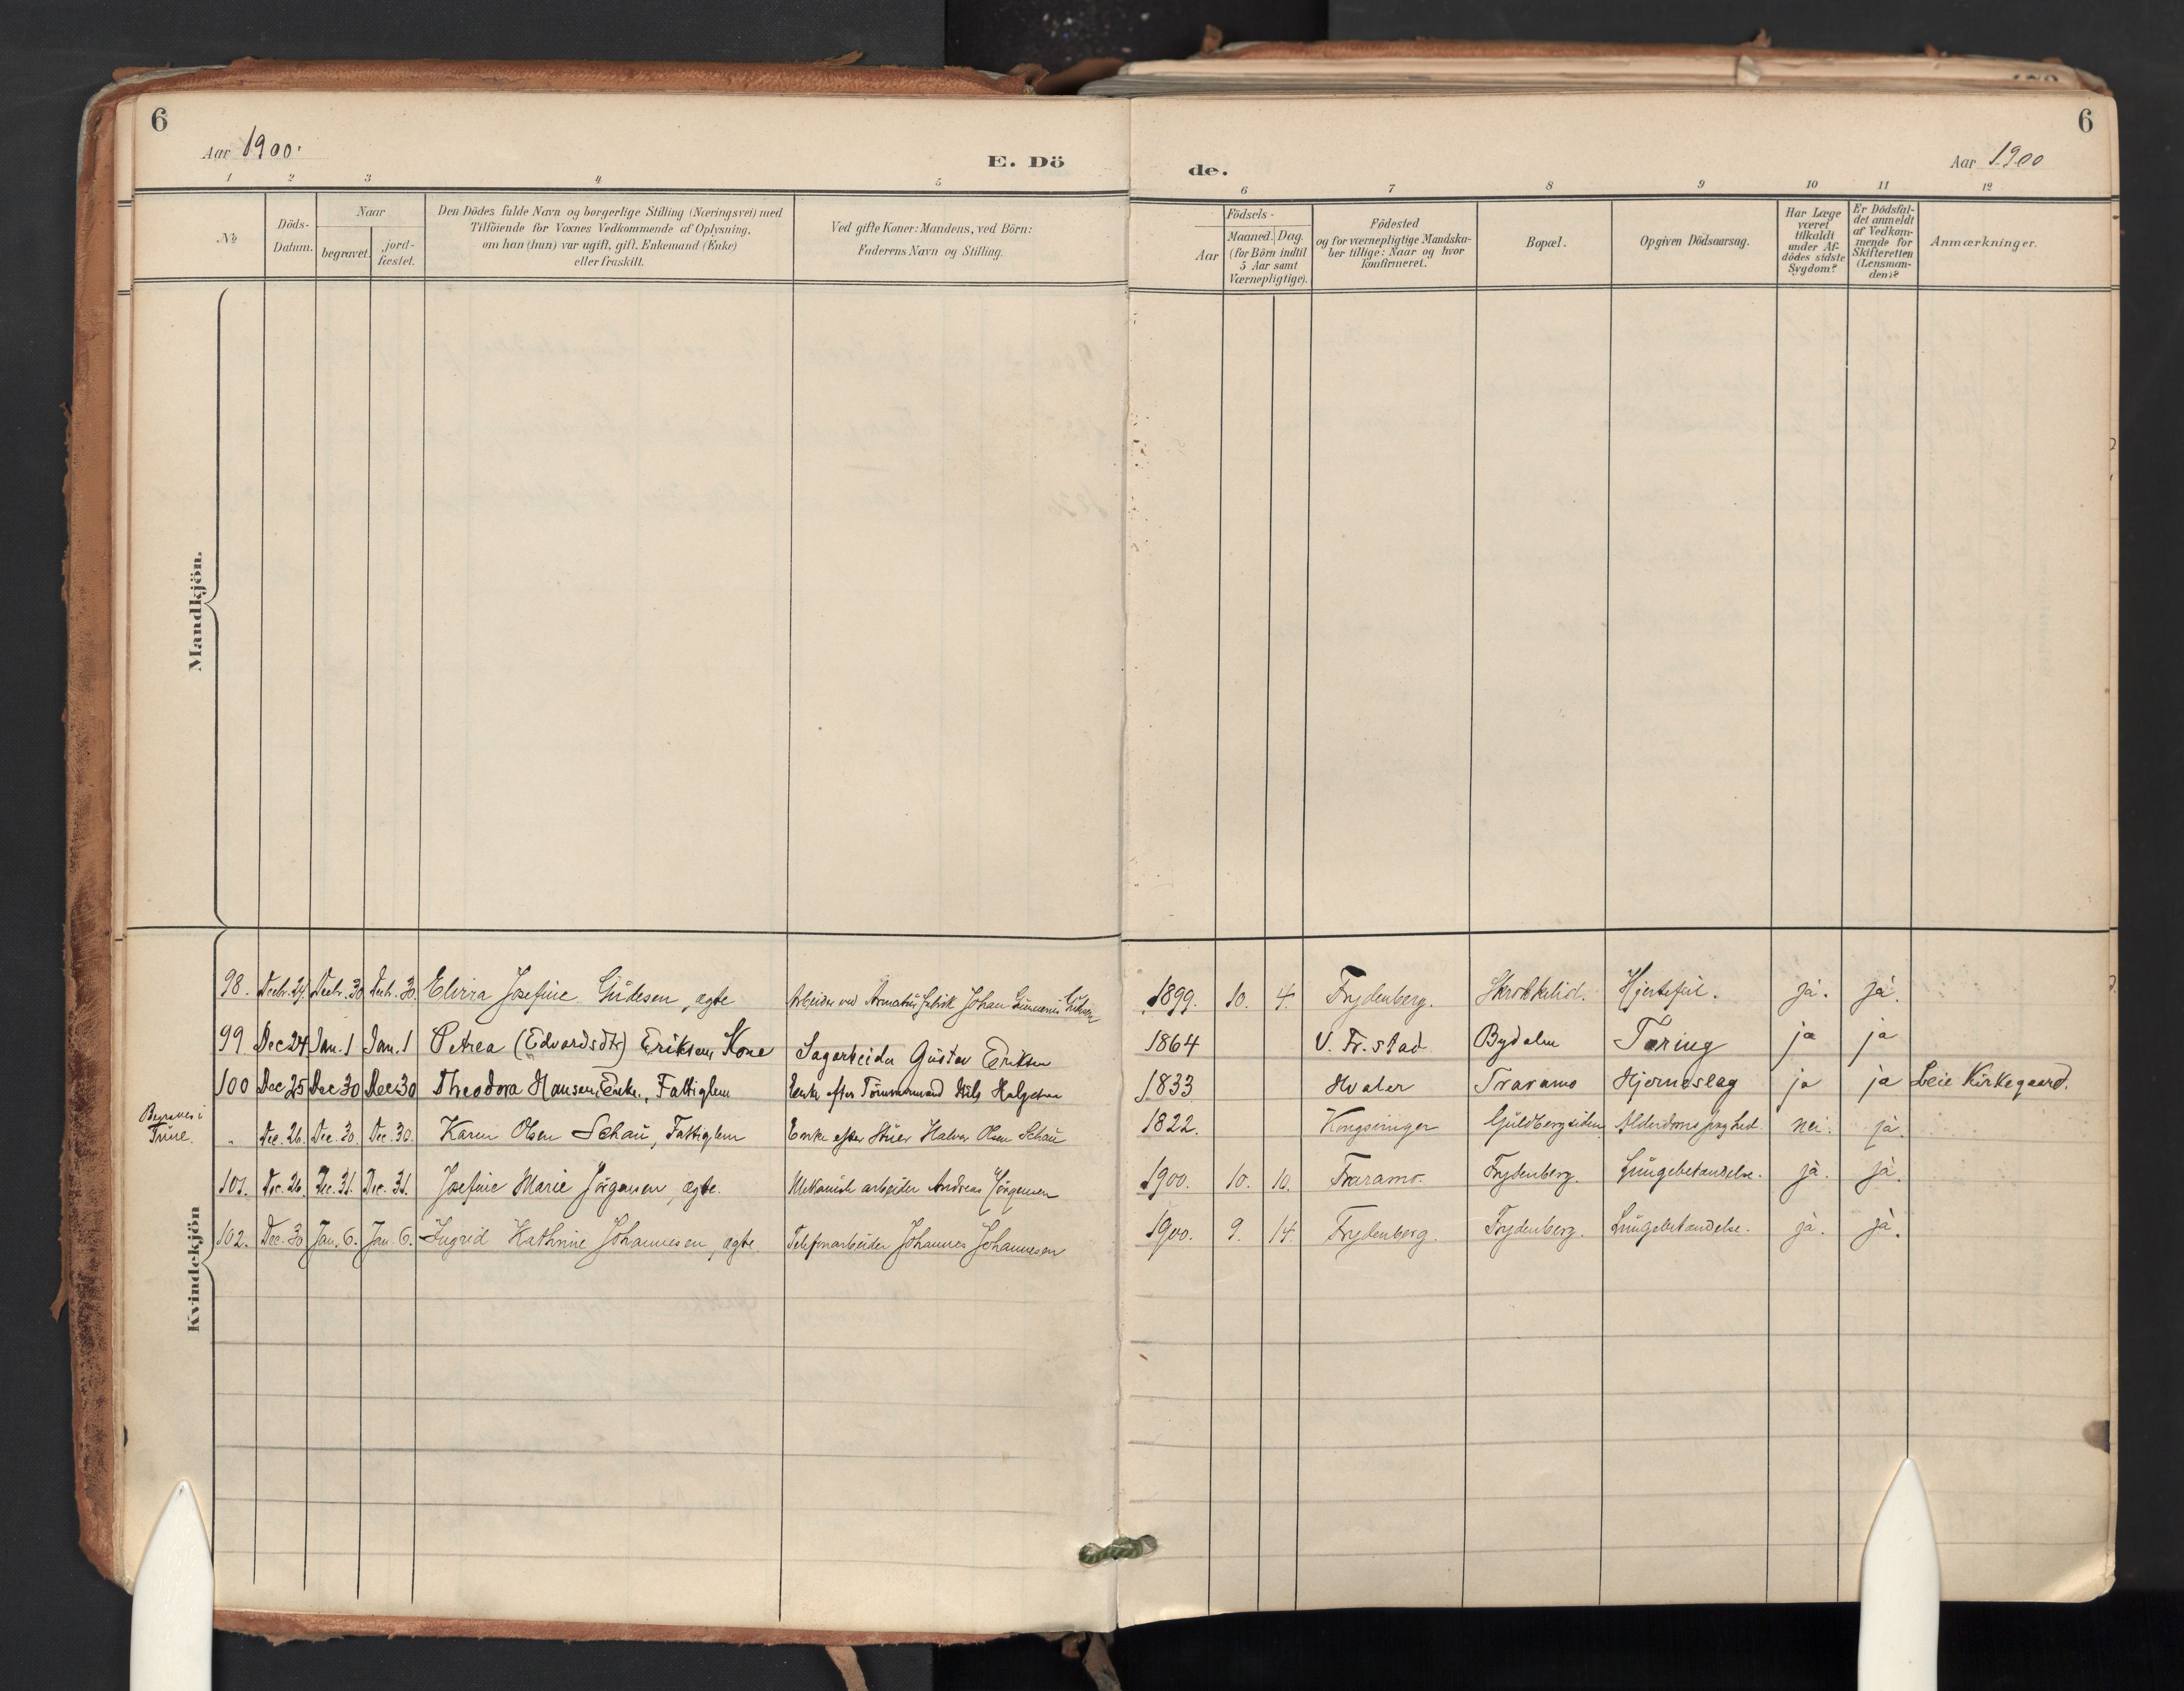 6
Aar 1900.
E. Dö
1 2 3 4 5
№
Döds-
Datum.
Naar
begravet.
jord-
fæstet.
Den Dödes fulde Navn og borgerlige Stilling (Næringsvei) med
Tilföiende for Voxnes Vedkommende af Oplysning,
om han (hun) var ugift, gift, Enkemand (Enke)
eller fraskilt.
Ved gifte Koner: Mandens, ved Börn:
Faderens Navn og Stilling.
Mandkjön.
98. Decbr. 24. Decbr. 30 Decb. 30. Elvira Josefine Gudesen, ægte Arbeider ved Armaturfabrik Johan
99 Dec 24 Jan. 1 Jan. 1 Petrea (Edvardsdtr) Eriksen, Kone Sagarbeider Gustav Eriksen
100 Dec 25 Dec 30 Dec 30 Theodora Hansen, Enke, Fattiglem Enke efter Tömmermand Nils Helgesen
Begraves i
Tune.
" Dec. 26. Dec. 30. Dec. 30. Karen Olsen Schau, Fattiglem Enke efter Stuer Halvor Olsen Schau
101. Dec. 26. Dec. 31. Dec. 31. Josefine Marie Jörgensen, ægte. Mekanisk arbeider Andreas Jörgensen
102. Dec. 30. Jan. 6. Jan. 6. Ingrid Kathrine Johannesen, ægte. Telefonarbeider Johannes Johannesen
Kvindekjön
6
Aar 1900
de.
6 7 8 9 10 11 12
Aar
Födsels-
Maaned. Dag.
(for Börn indtil
5 Aar samt
Værnepligtige).
Födested
og for værnepligtige Mandska-
ber tillige: Naar og hvor
konfirmeret.
Bopæl.
Opgiven Dödsaarsag.
Har Læge
været
tilkaldt
under Af-
dödes sidste
Sygdom?
Er Dödsfal-
det anmeldt
af Vedkom-
mende for
Skifteretten
(Lensman-
den)?
Anmærkninger.
1899. 10. 4. Frydenberg. Skrokkelid. Hjertefeil. ja. ja.
1864 V. Fr.stad Bydalen Tæring ja ja
1833 Hvaler Traramo Hjerneslag ja ja Leie Kirkegaard.
1822. Kongsvinger Guldbergsiden Alderdomssvaghed nei. ja.
1900. 10. 10. Traramo. Frydenberg. Lungebetændelse. ja. ja.
1900. 9. 14. Frydenberg. Frydenberg. Lungebetændelse. ja. ja.